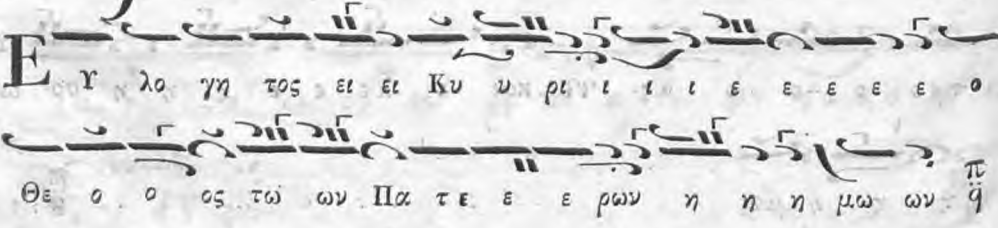 Ευ λο γη τος ει ει Κυ υ ρι ι ι ι ε ε ε ε ε ο
Θε ο ο ος τω ων Πα τε ε ε ε ρων η η η μω ων π̣ q̈